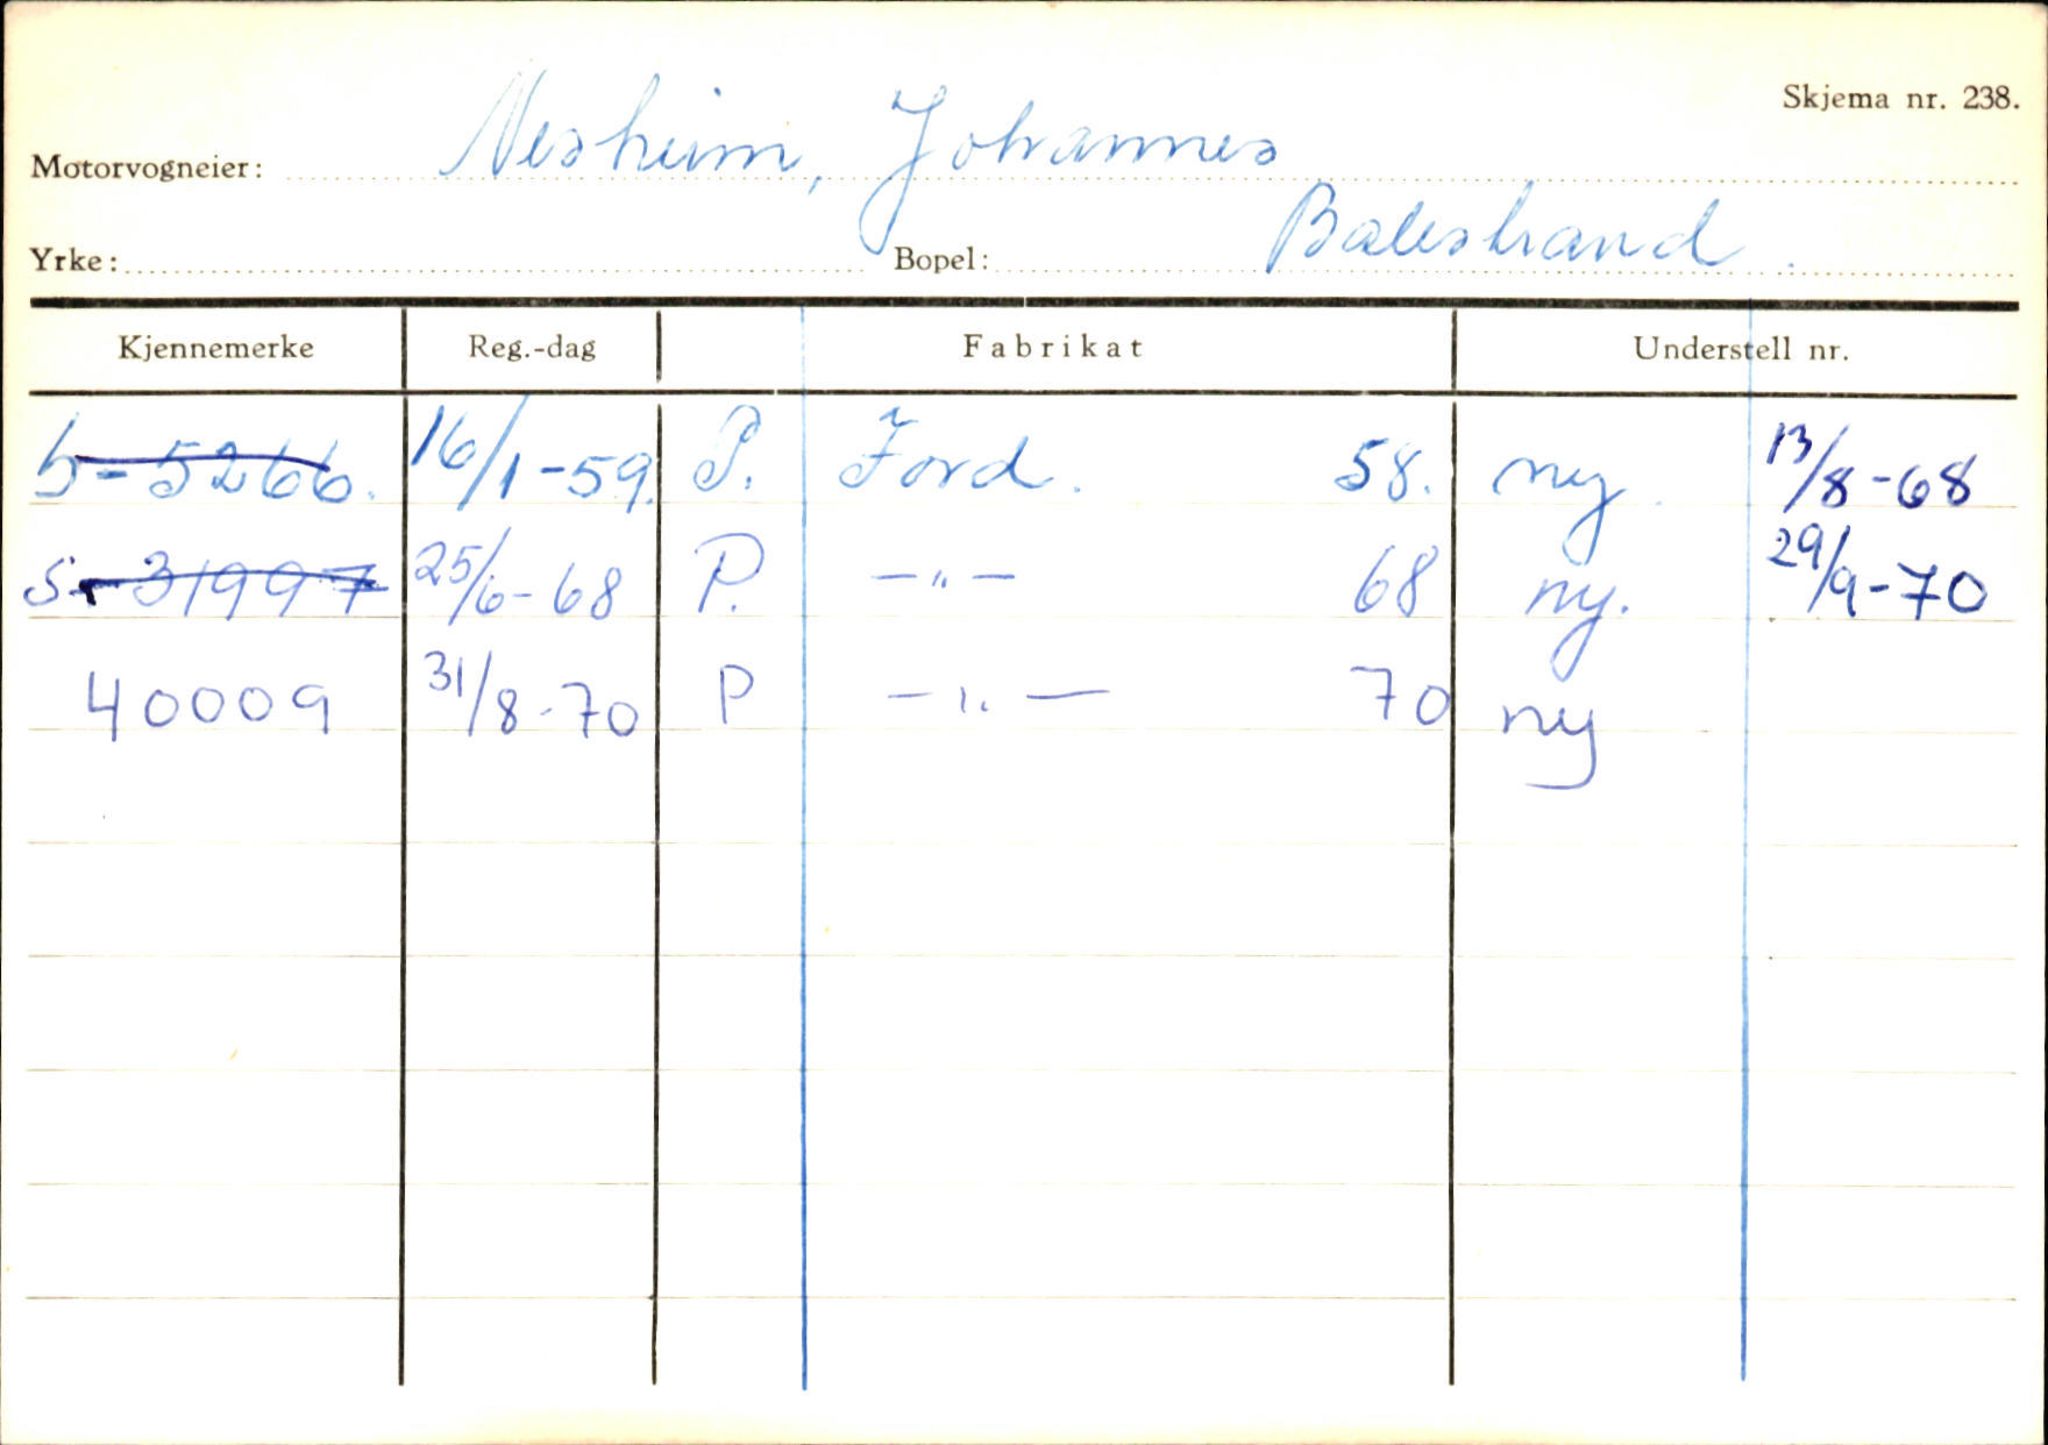 Skjema nr. 238.
Motorvogneier: Nesheim, Johannes
Yrke: Bopel: Balestrand.
Kjennemerke Reg.-dag Fabrikat Understell nr.
S-5266. 16/1-59. P. Ford. 58. ny. 13/8-68
S-31997 25/6-68 P. —"— 68 ny. 29/9-70
40009 31/8-70 P —"— 70 ny